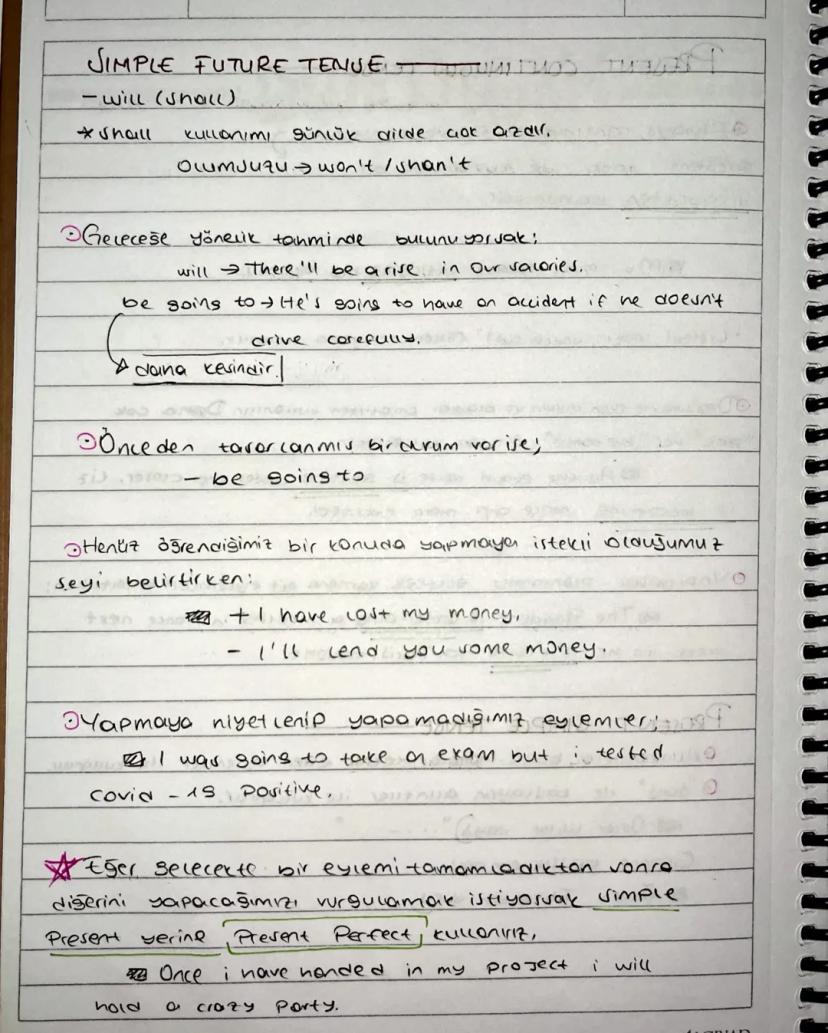 SIMPLE FUTURE TENSE
- will (shall)
* shall kullanımı günlük dilde çok azdır.
Olumsuzu → won't / shan't
Geleceğe yönelik tahminde bulunuyorsak;
will → There'll be a rise in our salaries.
be going to → He's going to have an accident if he doesn't
drive carefully.
daha kesindir!
Önceden tasarlanmış bir durum var ise;
- be going to
Henüz öğrendiğimiz bir konuda yapmaya istekli olduğumuz
şeyi belirtirken:
+ I have lost my money.
- I'll lend you some money.
Yapmaya niyetlenip yapamadığımız eylemler;
I was going to take an exam but i tested
covid - 19 positive.
Eğer gelecekte bir eylemi tamamladıktan sonra
diğerini yapacağımızı vurgulamak istiyorsak simple
Present yerine Present Perfect kullanırız.
Once i have handed in my project i will
hold a crazy party.